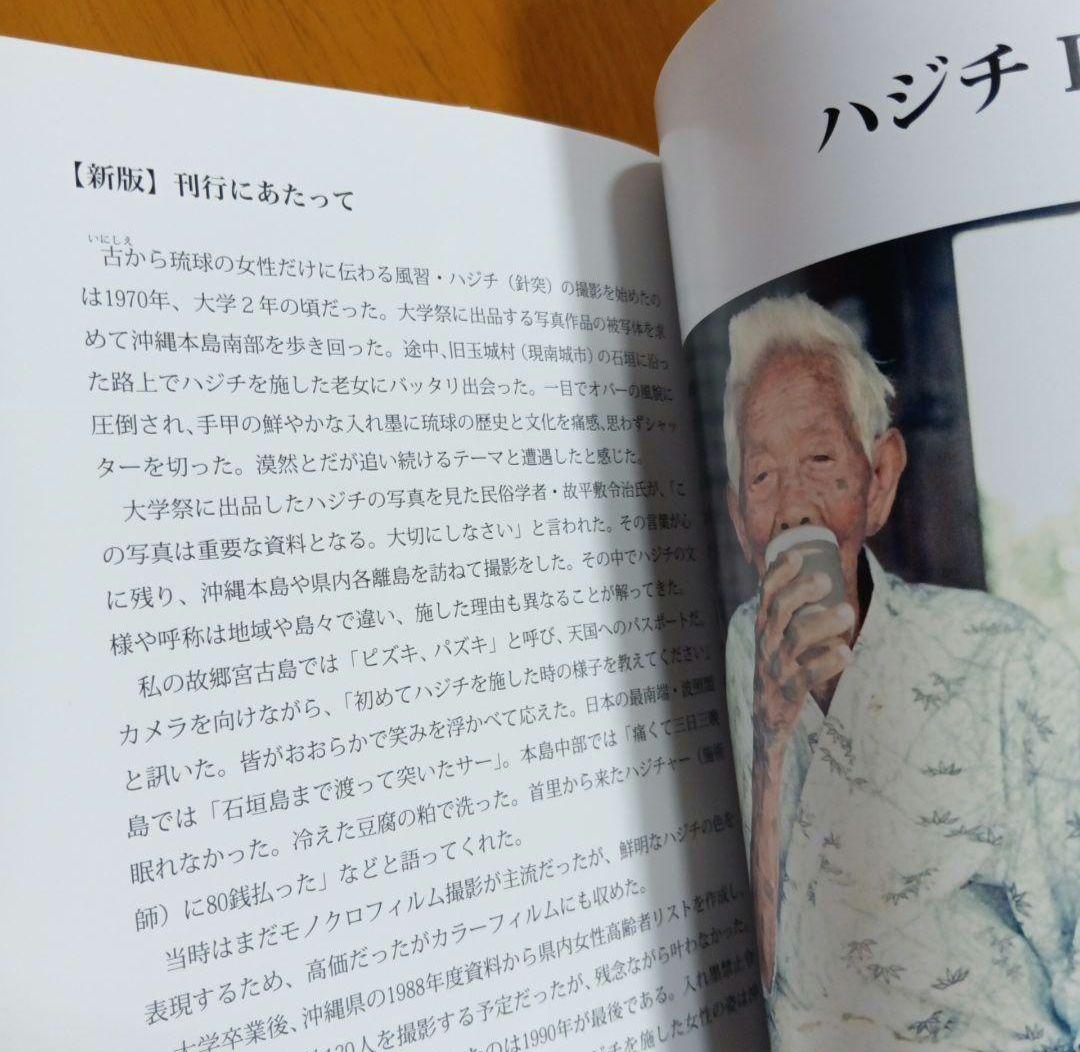 【新版】刊行にあたって
いにしえ
古から琉球の女性だけに伝わる風習・ハジチ（針突）の撮影を始めたの
は1970年、大学２年の頃だった。大学祭に出品する写真作品の被写体を求
めて沖縄本島南部を歩き回った。途中、旧玉城村（現南城市）の石垣に沿っ
た路上でハジチを施した老女にバッタリ出会った。一目でオバーの風貌に
圧倒され、手甲の鮮やかな入れ墨に琉球の歴史と文化を痛感、思わずシャッ
ターを切った。漠然とだが追い続けるテーマと遭遇したと感じた。
大学祭に出品したハジチの写真を見た民俗学者・故平敷令治氏が、「こ
の写真は重要な資料となる。大切にしなさい」と言われた。その言葉が心
に残り、沖縄本島や県内各離島を訪ねて撮影をした。その中でハジチの文
様や呼称は地域や島々で違い、施した理由も異なることが解ってきた。
私の故郷宮古島では「ピズキ、パズキ」と呼び、天国へのパスポートだ。
カメラを向けながら、「初めてハジチを施した時の様子を教えてください」
と訊いた。皆がおおらかで笑みを浮かべて応えた。日本の最南端・波照間
島では「石垣島まで渡って突いたサー」。本島中部では「痛くて三日三晩
眠れなかった。冷えた豆腐の粕で洗った。首里から来たハジチャー（施術
師）に80銭払った」などと語ってくれた。
当時はまだモノクロフィルム撮影が主流だったが、鮮明なハジチの色を
表現するため、高価だったがカラーフィルムにも収めた。
大学卒業後、沖縄県の1988年度資料から県内女性高齢者リストを作成し、
120人を撮影する予定だったが、残念ながら叶わなかった。
のは1990年が最後である。入れ墨禁止
チを施した女性の姿は
ハジチ